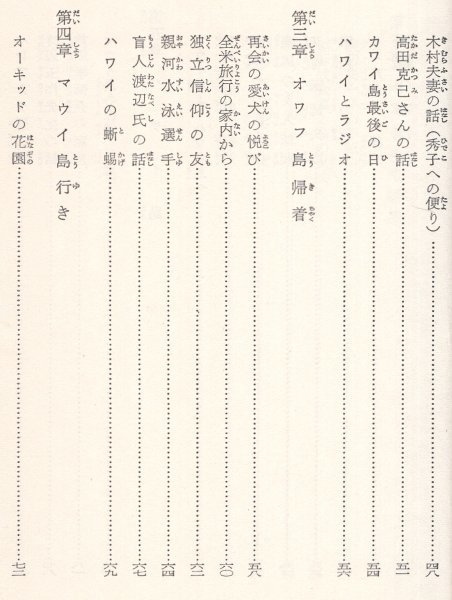 木村夫妻の話（秀子への便り）……四八
高田克己さんの話……五一
カワイ島最後の日……五四
ハワイとラジオ……五六
第三章 オワフ島帰着
再会の愛犬の悦び……五八
全米旅行の家内から……六〇
独立信仰の友……六二
親河水泳選手……六四
盲人渡辺氏の話……六七
ハワイの蜥蜴……六九
第四章 マウイ島行き
オーキッドの花園……七二